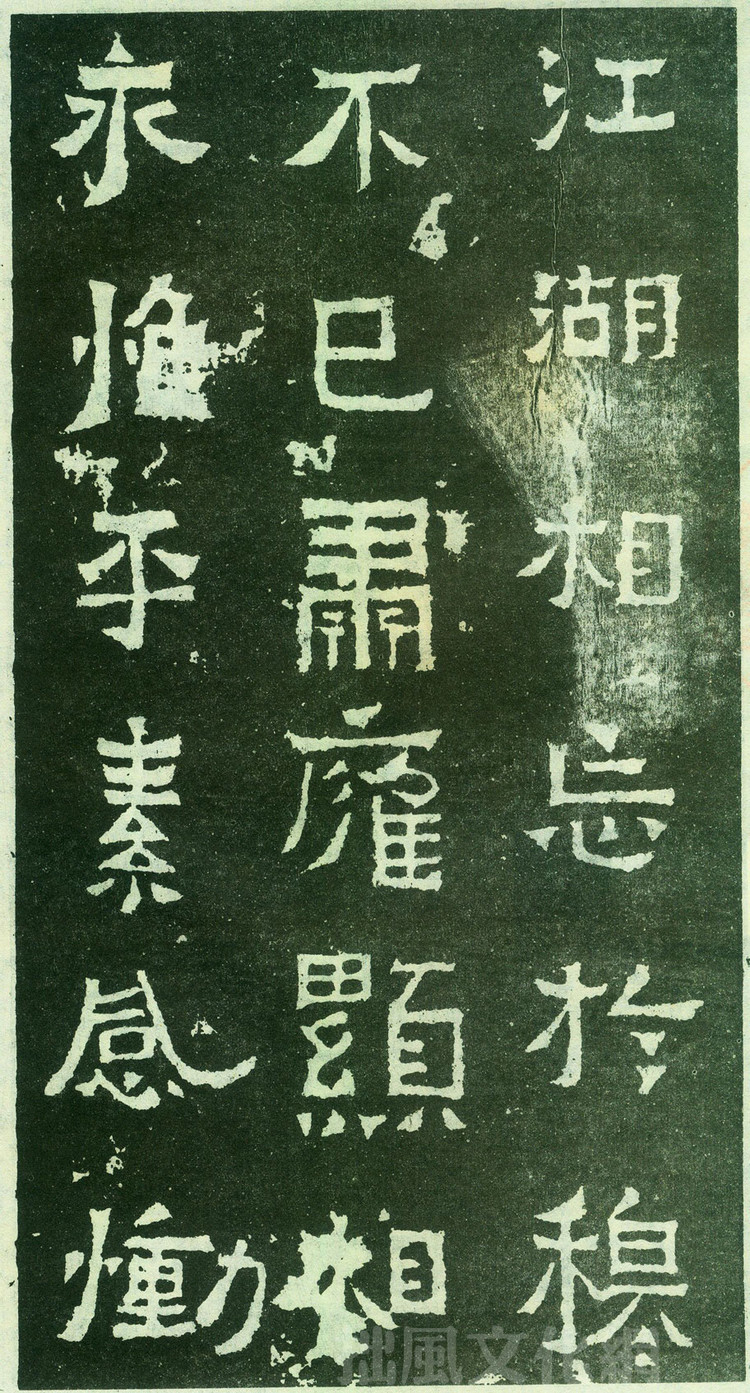 江湖相忘於穆
不已肅雍顯相
永惟平素感慟
拙風文化網